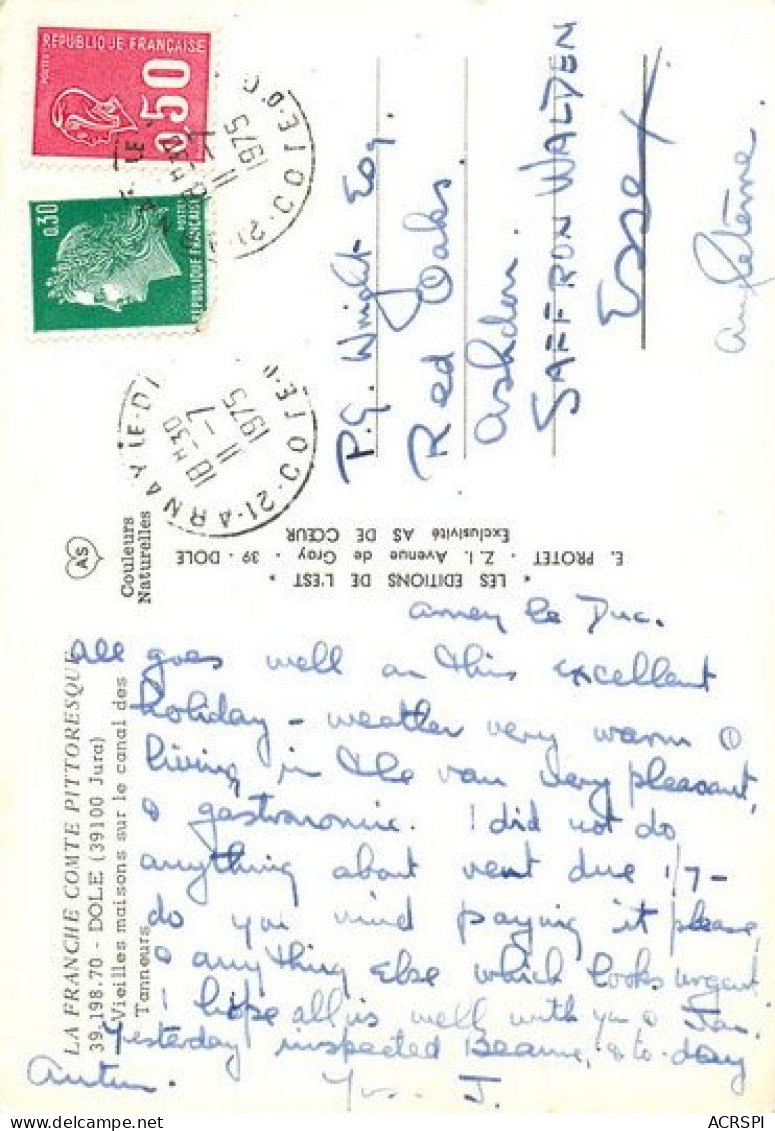 REPUBLIQUE FRANÇAISE
POSTES
0,50
0,30
POSTES
REPUBLIQUE FRANÇAISE
21-ARNAY-LE-DUC COTE-D'O
18 H 30
11-7
1975
21-ARNAY-LE-DUC COTE-D'O
18 H 30
11-7
1975
P.G. Wright Esq.
Red Oaks
Ashdon.
SAFFRON WALDEN
Essex
Angleterre.
AS
Couleurs
Naturelles
* LES EDITIONS DE L'EST *
E. PROTET - Z.I. Avenue de Gray - 39 - DOLE
Exclusivité AS DE CŒUR
LA FRANCHE COMTE PITTORESQUE
39.198.70 - DOLE (39100 Jura)
Vieilles maisons sur le canal des
Tanneurs
Arney le Duc.
All goes well on this excellent
holiday - weather very warm &
living in the van very pleasant,
& gastronomic. I did not do
anything about rent due 1/7 -
do you mind paying it please
& anything else which looks urgent
I hope all is well with you & Jan.
Yesterday inspected Beaune, & to-day
Autun. J.
ACRSPI